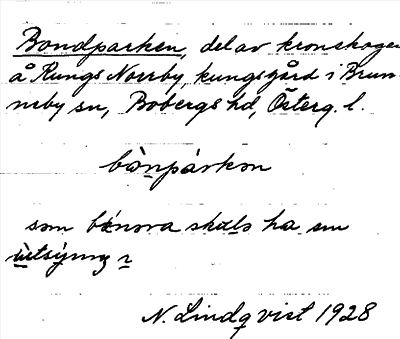 Bondparken, del av kronskogen
å Kungs Norrby, kungsgård i Brun-
neby sn, Bobergs hd, Österg. l.
bònpárkɑn
som bǿnɷra skɷls ha sɷm
ùtsýnıŋ ɿ
N. Lindqvist 1928